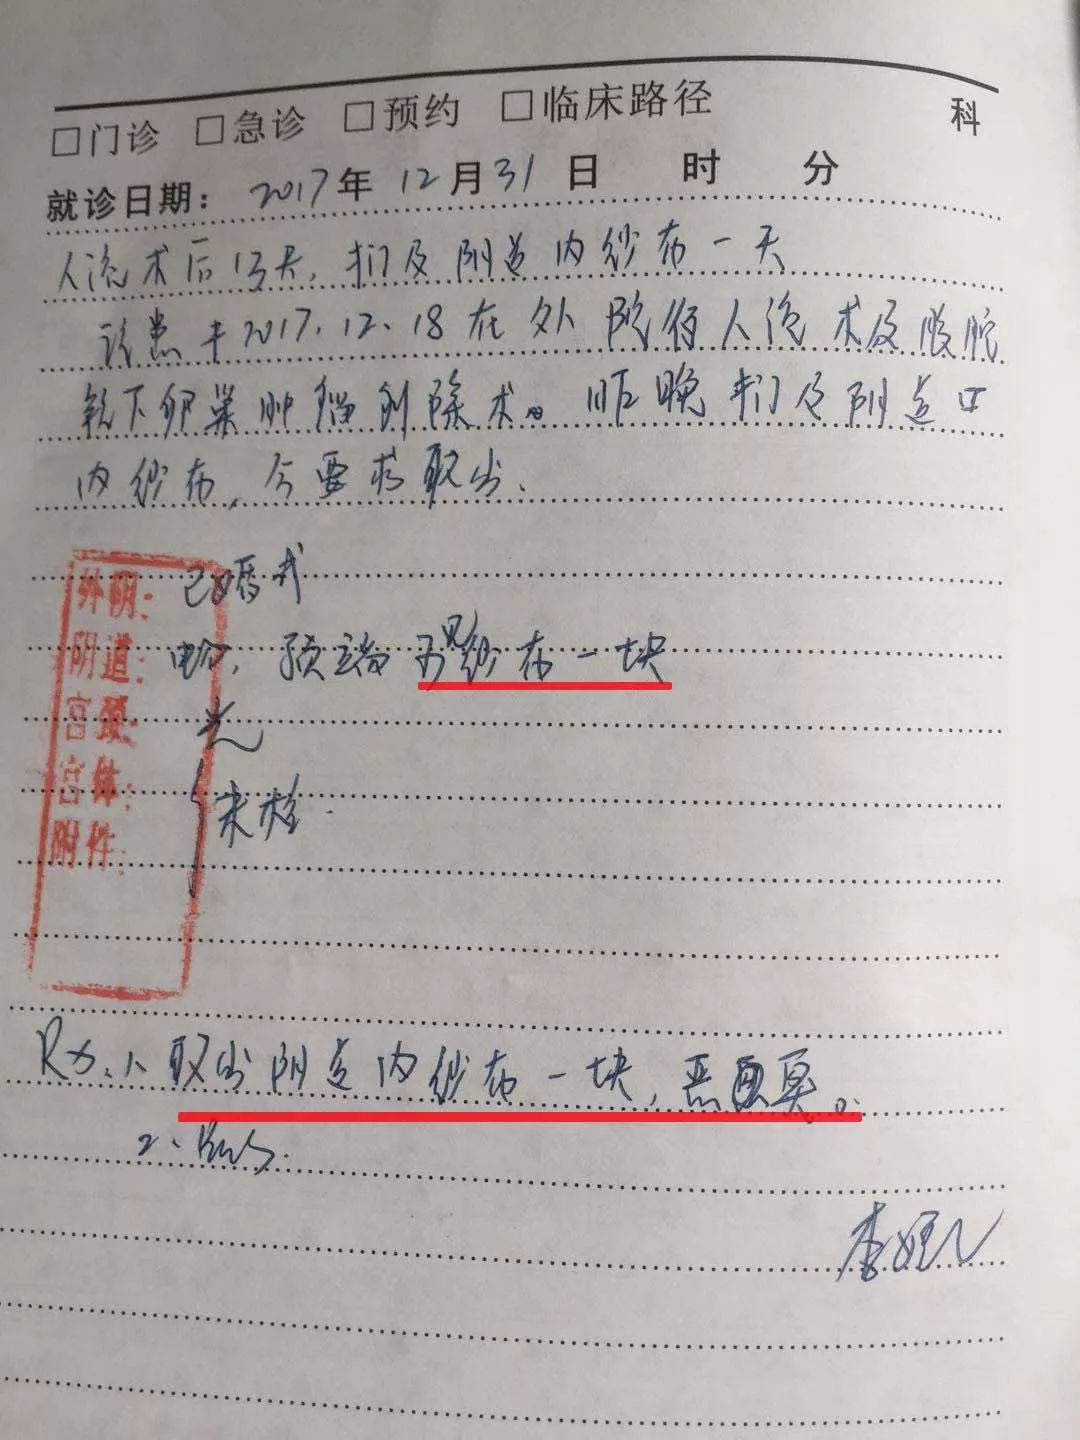 □门诊 □急诊 □预约 □临床路径 科
就诊日期: 2017年 12月31日 时 分
人流术后13天,扪及阴道内纱布一天
该患于2017.12.18在外院行人流术及腹腔
镜下卵巢肿瘤剔除术。昨晚扪及阴道口
内纱布,今要求取出.
外阴: 已婚式
阴道: 畅, 顶端可见纱布一块
宫颈: 光
宫体: 未检.
附件:
Rx: 1、取出阴道内纱布一块,恶臭。
2、